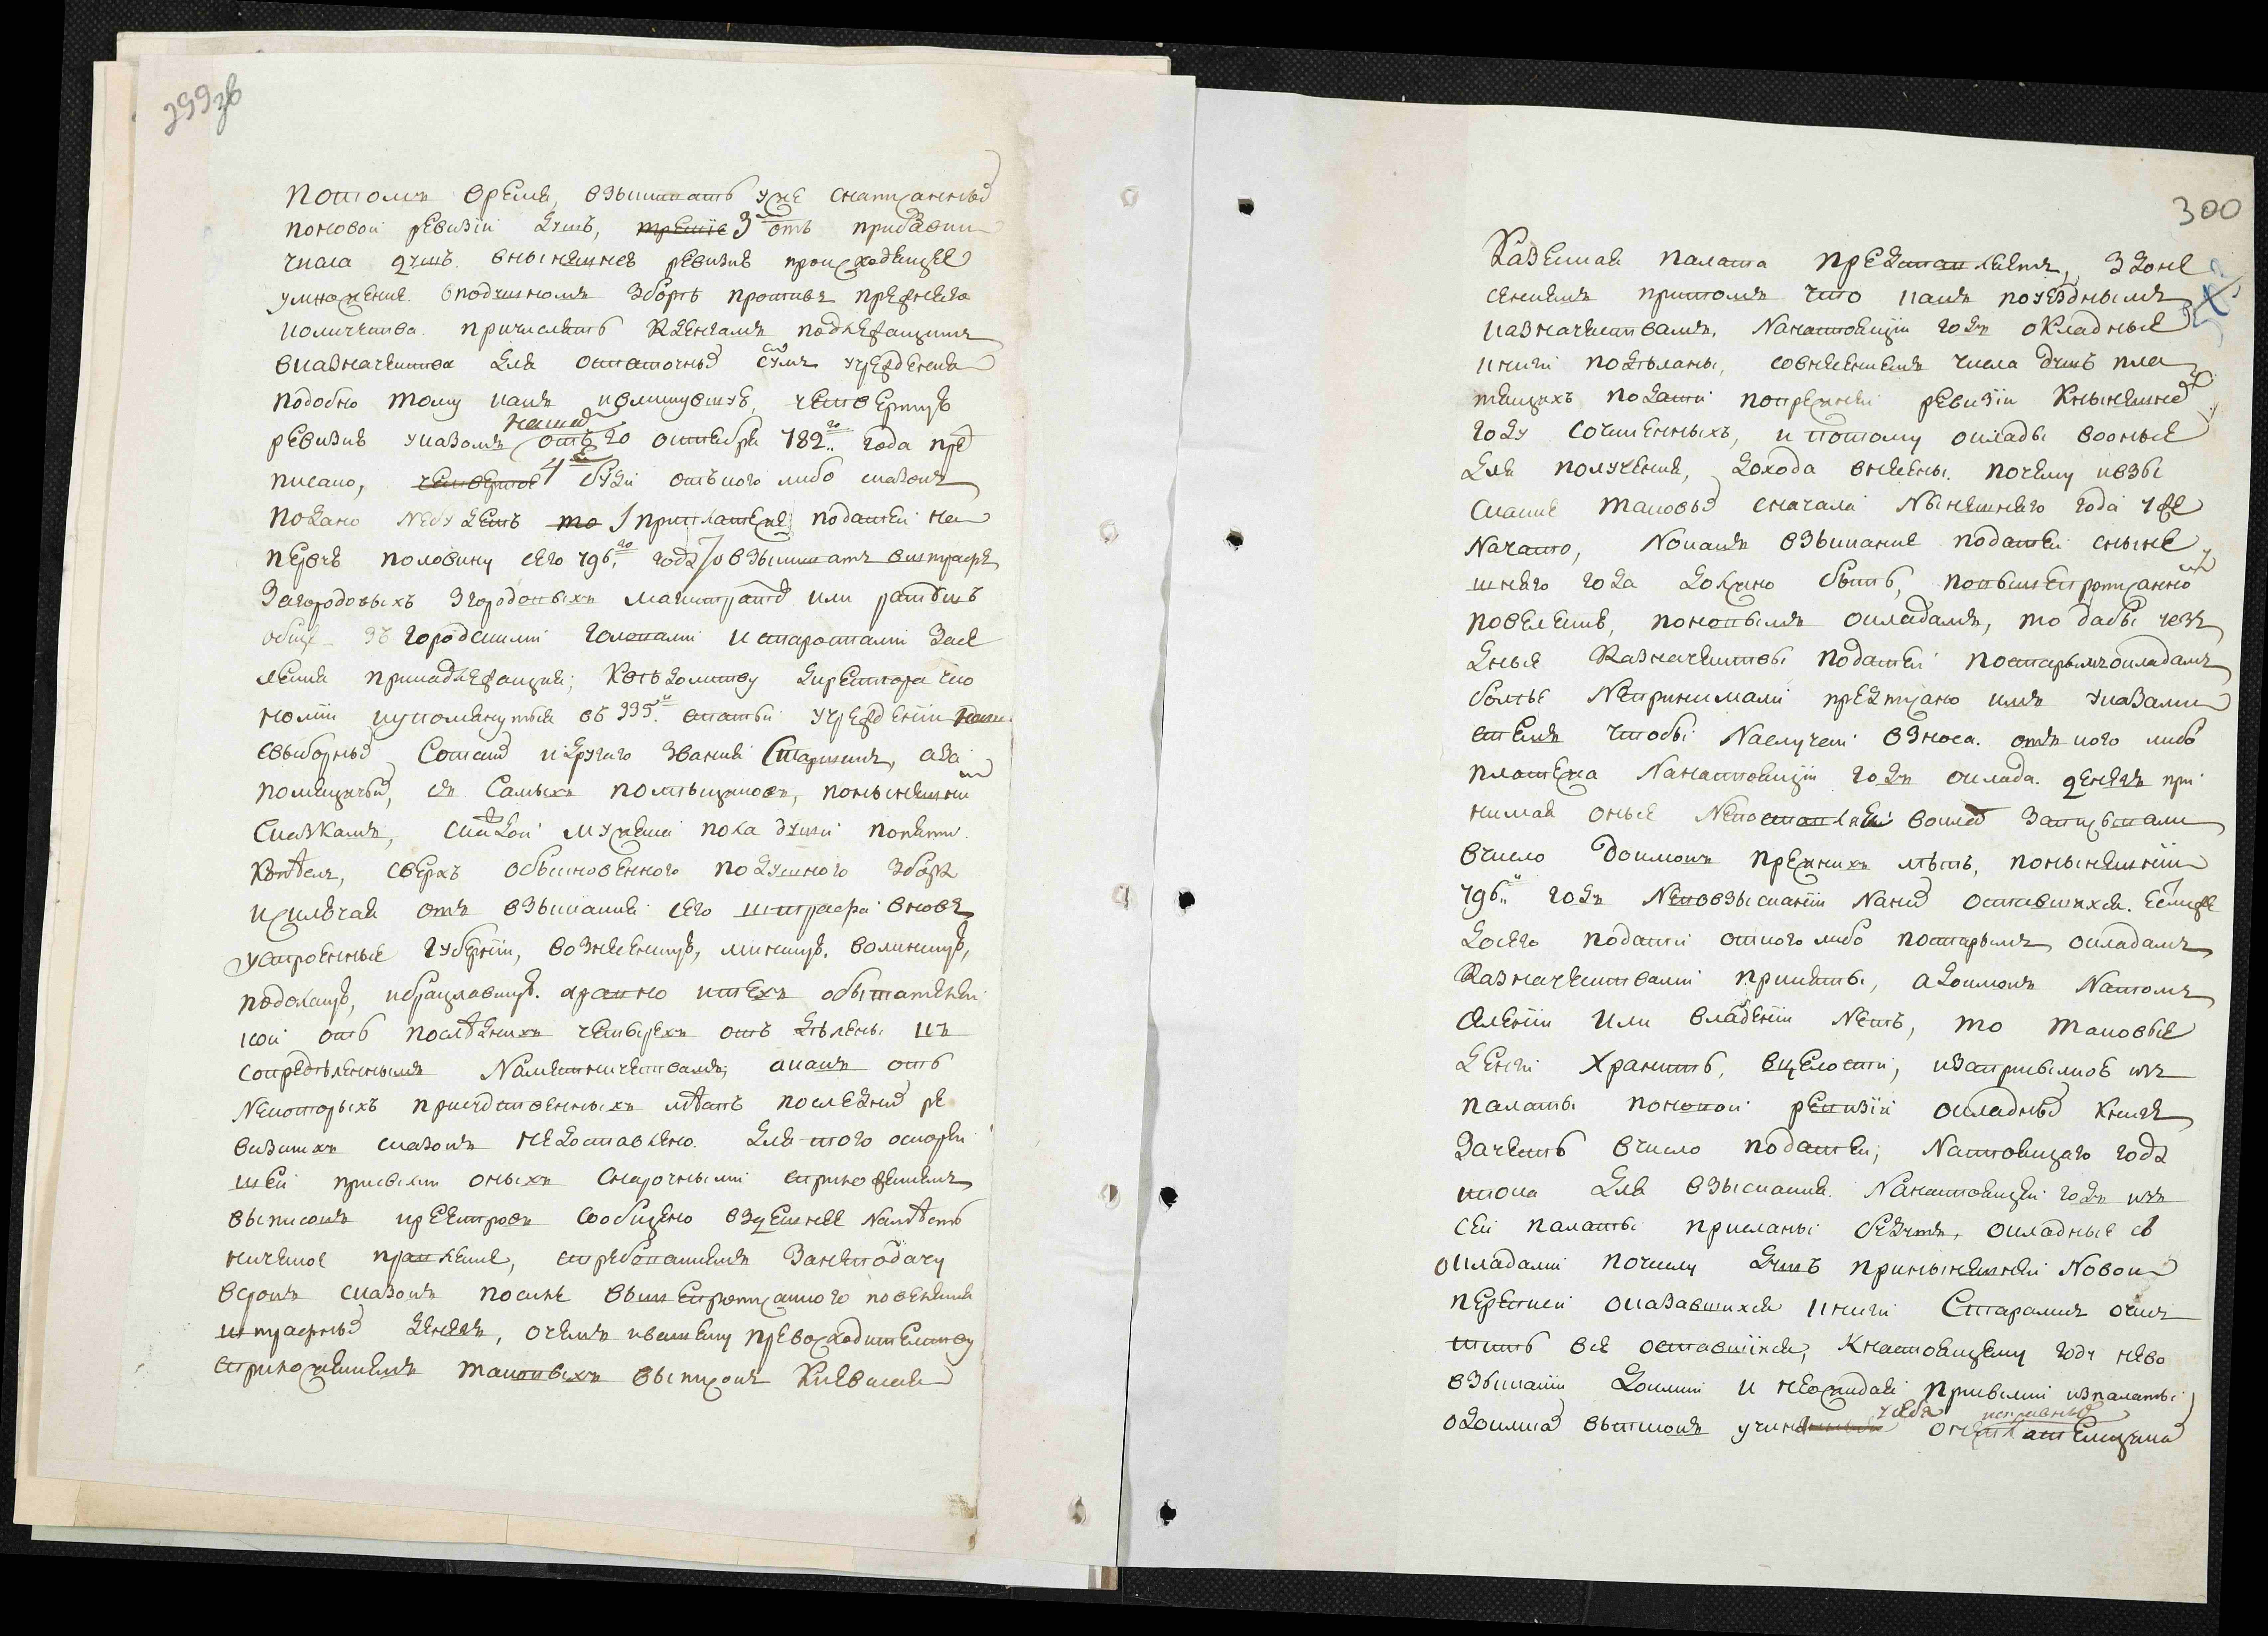 299зв
потомъ время, взыскать уже снаписанныхъ
поновой ревизіи душъ, третіе 3 отъ прибавки
числа душъ внынѣшнею ревизію происходящее
умноженіе вподушномъ зборѣ противъ прежняго
количества причислять кденгамъ подлежащимъ
вказначейства для остаточныхъ сумъ учрежденія
подобно тому какъ
ревизію указомъ отъ 20 октября 782го года пред
писано, четвертое 4е буди откого либо сказокъ
подано небудетъ то приплатежѣ податей на
первую половину сего 796го года взыскать вштрафъ
Загородовыхъ згородовыхъ магистратовъ или ратушъ
обще зъ городскими головами истаростами засе
ленія принадлежащія; Къ домоводству директора эко
номіи иупомянутыя въ статьи учрежденіи
свыборныхъ Сотскихъ идругаго званія Старшинъ, аза
помещичьихъ, съ самыхъ помѣщиковъ, понынѣшним
Сказкамъ, скаждой мужеска пола души попяти
копѣекъ, сверхъ обыкновенного подушного збора
исключая отъ взысканія сего штрафа вновь
устроенные губерніи, вознесенскую, минскую, волынскую,
подольскую, ибрацлавскую. аравно итехъ обывателей
кои отъ последнихъ четырехъ отъ дѣлены къ
сопредѣленнымъ Наместничествамъ; акакъ отъ
Некоторыхъ присудственныхъ мѣстъ последнихъ ре
визскихъ сказокъ недоставлено. для того оскорей
шей присылки оныхъ снарочными сприложеніемъ
выписокъ иреестровъ сообщено вздешнее Намѣст
ническое правленіе, стребованіемъ занеподачу
всрокъ сказокъ посиле вышепрописанного повеленія
штрафныхъ денегъ, очемъ ивашему превосходительству
сприложеніемъ таковыхъ выписокъ Кіевская
300
Казенная палата представляетъ, здоне
сеніемъ притомъ что какъ поуезднымъ
казначействамъ, Нанастоящій годъ окладные
книги подѣланы, совнесеніемъ числа душъ пла
тящихъ подати попрежней ревизіи Кнынешнему
году сочиненныхъ, и потому оклады воные
для полученія, дохода внесены. почему ивзы
сканіе таковыхъ сначала Нынешняго года уже
Начато, Нокакъ взысканіе податей сныне
шняго года должно быть, повышепрописанному
повелению, поновымъ окладамъ, то дабы уезд
дные Казначействы податей постарымъокладамъ
болѣе Непринимали предписано имъ указами
стемъ чтобы Наслучай взноса отъ кого либо
платежа Нанастоящій годъ оклада денегъ при
нимая оные Непоставляли вокладъ записывали
вчисло доимокъ прежнихъ лѣтъ, понынешній
796й годъ Неповзысканіи Наныхъ оставшихся. Естьлиже
досего податей откого либо постарымъ окладамъ
Казначействами приняты, адоимокъ Натомъ
селеніи или владеніи Нетъ, то таковые
деньги хранить, вцелости, изаприсылкою изъ
палаты поновой ревизіи окладныхъ книгъ
зачесть вчисло податей; Настоящаго года
ипока для взысканія Нанастоящей годъ изъ
сей палаты присланы будутъ, окладные съ
окладами почему душъ принынешней Новой
переписи оказавшихся книги Стараться очис
тить все оставшіяся, Кнастоящему году нево
взысканіи доимки и неожидая присылки изпалаты
одоимкахъ выписокъ учиня усебя исправныхъ